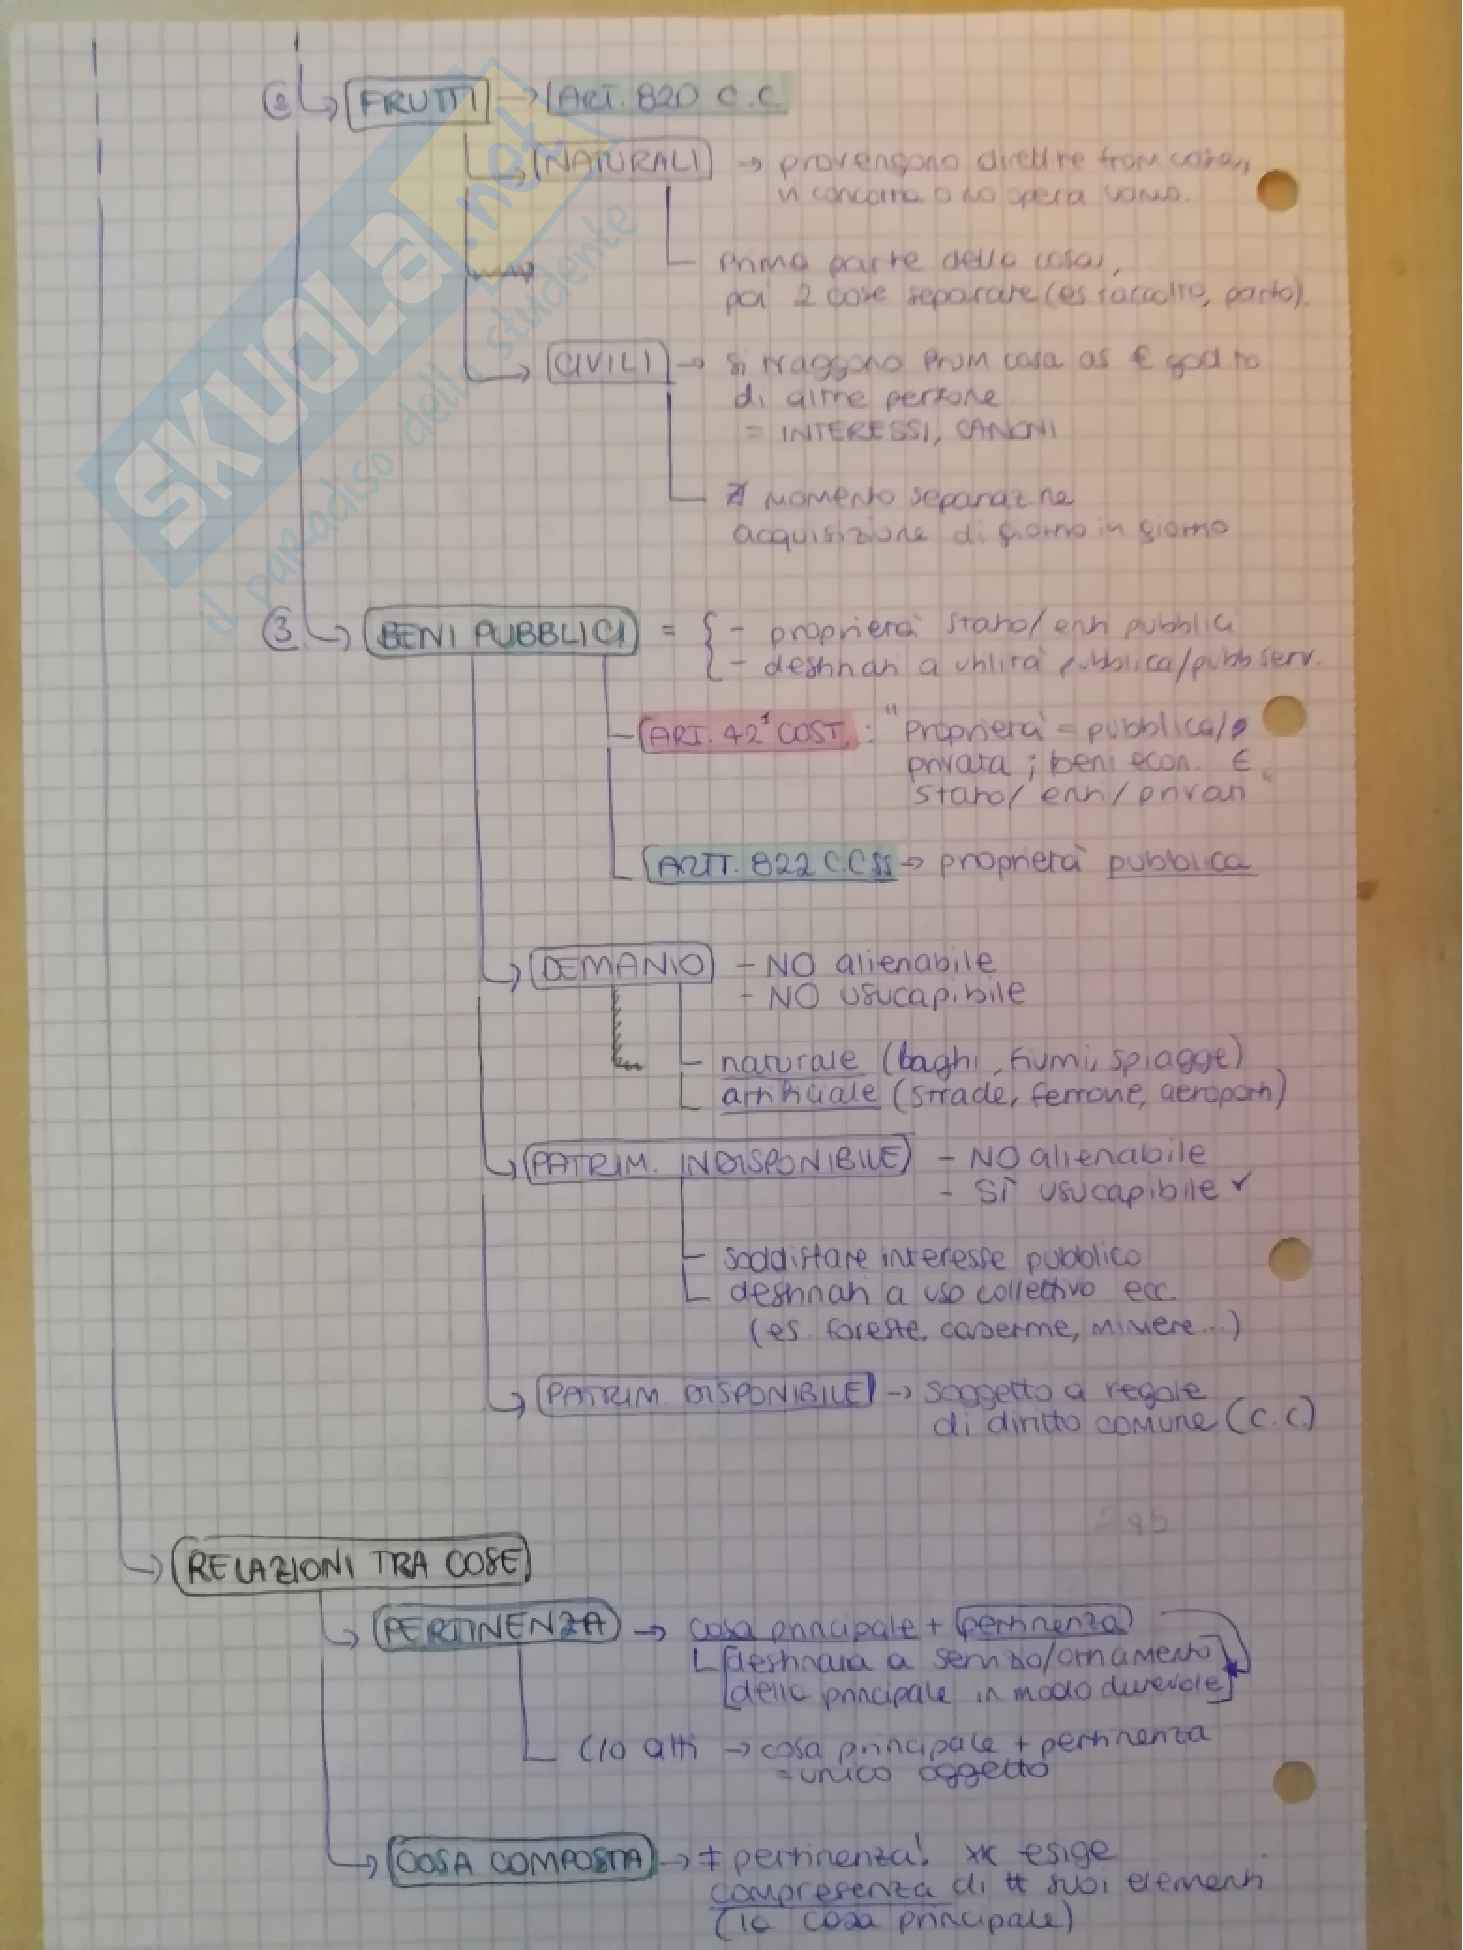 ② FRUTTI → ART. 820 C.C.
NATURALI → provengono direttre from cosa,
concorra o no opera
prima parte della cosa,
poi 2 cose separate (es raccolto, parto).
CIVILI → si traggono from cosa as € god to
di altre persone
= INTERESSI, CANONI
∄ momento separaz ne
acquisizione di giorno in giorno
③ BENI PUBBLICI = { - proprietà stato/enti pubblici
- destinati a utilità pubblica/pubb serv.
ART. 42¹ COST. : "Proprietà = pubblica/
privata ; beni econ. €
stato/ enti/privati"
ARTT. 822 C.C SS → proprietà pubblica
DEMANIO - NO alienabile
- NO usucapibile
naturale (laghi, fiumi, spiagge)
artificiale (strade, ferrovie, aeroporti)
PATRIM. INDISPONIBILE - NO alienabile
- SÌ usucapibile ✓
soddisfare interesse pubblico
destinati a uso collettivo ecc.
(es. foreste, caserme, miniere...)
PATRIM. DISPONIBILE → soggetto a regole
di diritto comune (C.C.)
RELAZIONI TRA COSE
PERTINENZA → cosa principale + pertinenza
[destinata a servizio/ornamento
della principale in modo durevole]
atti → cosa principale + pertinenza
= unico oggetto
COSA COMPOSTA → ≠ pertinenza! xk esige
compresenza di tt suoi elementi
cosa principale)
SKUOLA.net
il paradiso dello studente